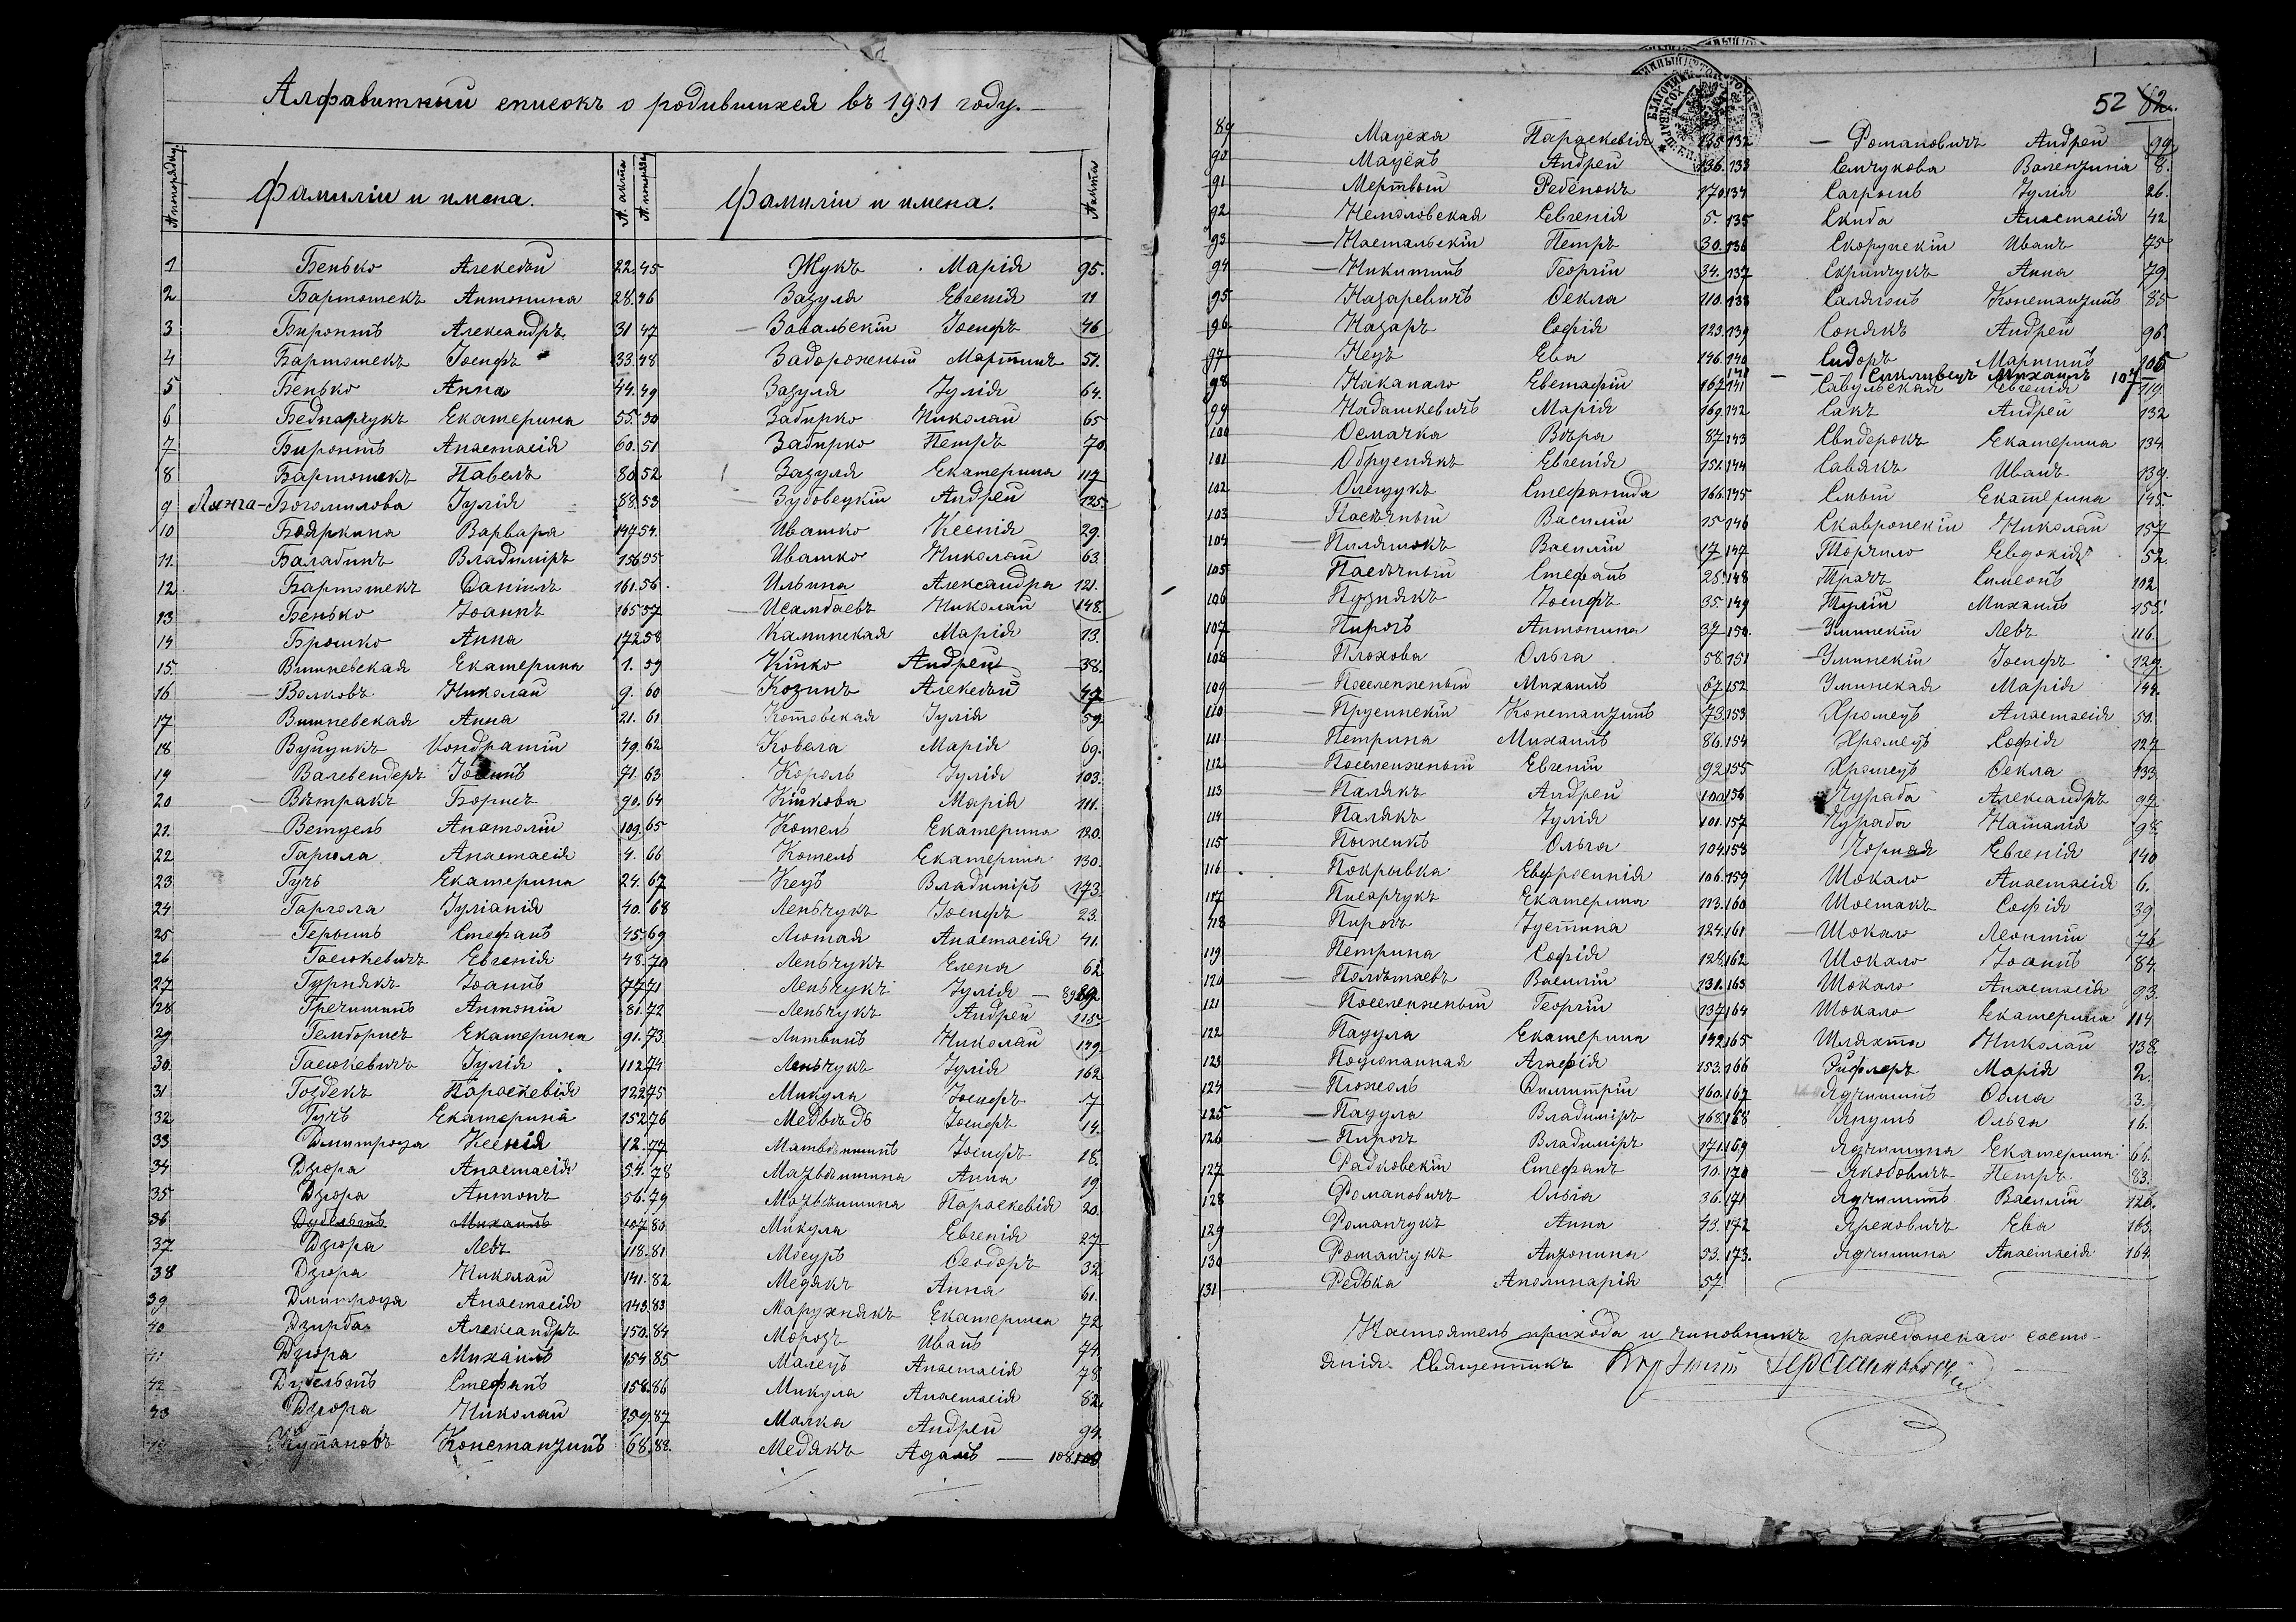 Алфавитный списокъ о родившихся въ 1901 году.
№ по порядку. Фамиліи и имена. № акта № по порядку Фамиліи и имена. № акта
1 Бенько Алексѣй 22.
2 Бартошекъ Антонина 28.
3 Биронтъ Александръ 31
4 Бартошекъ Іосифъ 33.
5 Бенько Анна 44.
6 Беднарчукъ Екатерина 55.
7 Биронтъ Анастасія 60.
8 Бартошекъ Павелъ 80
9 Богомилова Іулія 88.
10 Бояркина Варвара 147
11. Балабинъ Владиміръ 156
12. Бартошекъ Даніилъ 161.
13 Бенько Іоаннъ 165
14 Брошко Анна 172
15. Вишневская Екатерина 1.
16 Волковъ Николай 9.
17 Вишневская Анна 21.
18 Вуйцукъ Кондратій 49.
19 Валевендеръ 71.
20 Вѣтракъ Борисъ 90.
21. Ветцель Анатолій 109.
22 Гаргола Анастасія 4.
23 Гучъ Екатерина 24.
24 Гаргола Іуліанія 40.
25 Стефанъ 45.
26 Гаськевичъ Евгенія 48.
27 Гурнякъ Іоаннъ 77
28 Гречишинъ Антоній 81.
29 Гемборисъ Екатерина 91.
30 Гаськевичъ Іулія 112
31 Гоздекъ Параскевія 122
32 Гучъ Екатерина 152
33 Дмитроца Ксенія 12.
34 Дзюра Анастасія 54.
35 Дзюра Антонъ 56.
36 Дубельтъ Михаилъ 107
37 Дзюра Левъ 118.
38 Дзюра Николай 141.
39 Дмитроца Анастасія 143.
40 Дзирба Александръ 150.
41 Дзюра Михаилъ 154
42 Дубельтъ Стефанъ 158.
43 Дзюра Николай 159.
44 Жупановъ Константинъ 68.
45 Жукъ Марія 95.
46 Зазуля Евгенія 11
47 Завальскій Іосифъ 46
48 Задорожный Мартинъ 51.
49 Зазуля Іулія 64.
50 Забирко Николай 65
51 Забирко Петръ 70
52 Зазуля Екатерина 117
53 Зубовецкій Андрей 125.
54. Ивашко Ксенія 29.
55 Ивашко Николай 63.
56. Ильина Александра 121.
57 Исамбаевъ Николай 148.
58 Калинская Марія 13
59 Кицко Андрей 38.
60 Козинъ Алексѣй 47
61 Котовская Іулія 59.
62 Ковала Марія 69.
63 Король Іулія 103.
64 Кицкова Марія 111.
65 Котель Екатерина 120.
66 Котель Екатерина 130.
67 Кецъ Владиміръ 173.
68 Леньчукъ Іосифъ 23.
69 Лютая Анастасія 41.
70 Леньчукъ Елена 62
71 Леньчукъ Іулія — 89
72 Леньчукъ Андрей 115
73 Литвинъ Николай 149.
74 Леньчукъ Іулія 162
75 Микула Іосифъ 7
76 Медвѣдь Іосифъ 14.
77 Матвѣишинъ Іосифъ 18.
78 Матвѣишина Анна 19
79 Матвѣишина Параскевія 20.
80 Микула Евгенія 27
81 Мосуръ Ѳеодоръ 32
82 Медякъ Анна 61.
83 Марухнякъ Екатерина 72
84 Морозъ Иванъ 74
85 Малецъ Анастасія 78.
86 Микула Анастасія 82.
87 Малка Андрей 94.
88 Медякъ Адамъ — 108
52 62.
89 Мацеха Параскевія 135
90 Мацехъ Андрей 136.
91 Мертвый Ребенокъ 170
92 Немоловская Евгенія 5.
93 Настальскій Петръ 30.
94 Никитинъ Георгій 34.
95 Назаревичъ Ѳекла 110.
96 Назаръ Софія 123.
97 Нецъ Ева 146
98 Накапало Евстафій 167
99 Надашкевичъ Марія 169.
100 Осмачка Вѣра 87
101 Обруснякъ Евгенія 151.
102 Олещукъ Стефанида 166.
103 Пасѣчный Василій 15
104 Пиляшокъ Василій 17
105 Пасѣчный Стефанъ 25
106 Пузнякъ Іосифъ 35.
107 Пирогъ Антонина 37
108 Плохова Ольга 58.
109 Поселенный Михаилъ 67
110 Прусинскій Константинъ 73.
111 Петрина Михаилъ 86.
112 Поселенный Евгеній 92
113 Палякъ Андрей 100
114 Палякъ Іулія 101.
115 Ольга 104
116 Покрывка Евфросинія 106
117 Писарчукъ Екатерина 113.
118 Пирогъ Іустина 124.
119 Петрина Софія 128
120 Полѣтаевъ Василій 131.
121 Поселенный Георгій 137
122 Пацула Екатерина 142
123 Агафія 153.
124 Димитрій 160.
125 Пацула Владиміръ 168.
126 Пирогъ Владиміръ 171.
127 Радковскій Стефанъ 10.
128 Романовичъ Ольга 36.
129 Романчукъ Анна 43.
130 Романчукъ Антонина 53.
131 Редька Аполинарія 57.
132 Романовичъ Андрей 99
133 Семчукова Валентина 8.
134 Іулія 26.
135 Скиба Анастасія 42
136 Скорупскій Иванъ 75
137 Скринчукъ Анна 79
138 Константинъ 85
139 Сонякъ Андрей 96.
140 Сидоръ Мартинъ 105
141 Сикливецъ Михаилъ 107
141 Савульская Евгенія 119.
142 Сакъ Андрей 132
143 Свидерокъ Екатерина 134.
144 Савякъ Иванъ 139.
145 Екатерина 145.
146 Скавронскій Николай 157
147 Торчило Евдокія 52.
148 Трачъ Симеонъ 102
149 Михаилъ 155.
150. Улинскій Левъ 116.
151 Улинскій Іосифъ 129.
152 Улинская Марія 144.
153 Хромецъ Анастасія 50.
154 Хромецъ Софія 127
155 Хромецъ Ѳекла 133
156 Цураба Александръ 97
157 Цураба Наталія 98
158 Чорная Евгенія 140
159 Шокало Анастасія 6.
160 Шостакъ Софія 39
161 Шокало Леонтій 76
162 Шокало Іоаннъ 84.
163 Шокало Анастасія 93.
164 Шокало Екатерина 114
165 Шляхта Николай 138.
166 Марія 2.
167 Ядчишинъ Ѳома 3.
168 Янушъ Ольга 16.
169 Ядчишина Екатерина 66.
170 Якобовичъ Петръ 83.
171 Ядчишинъ Василій 126.
172 Яреховичъ Ева 163
173. Ядчишина Анастасія 164.
Настоятель прихода и чиновникъ гражданскаго состо-
янія. Священникъ